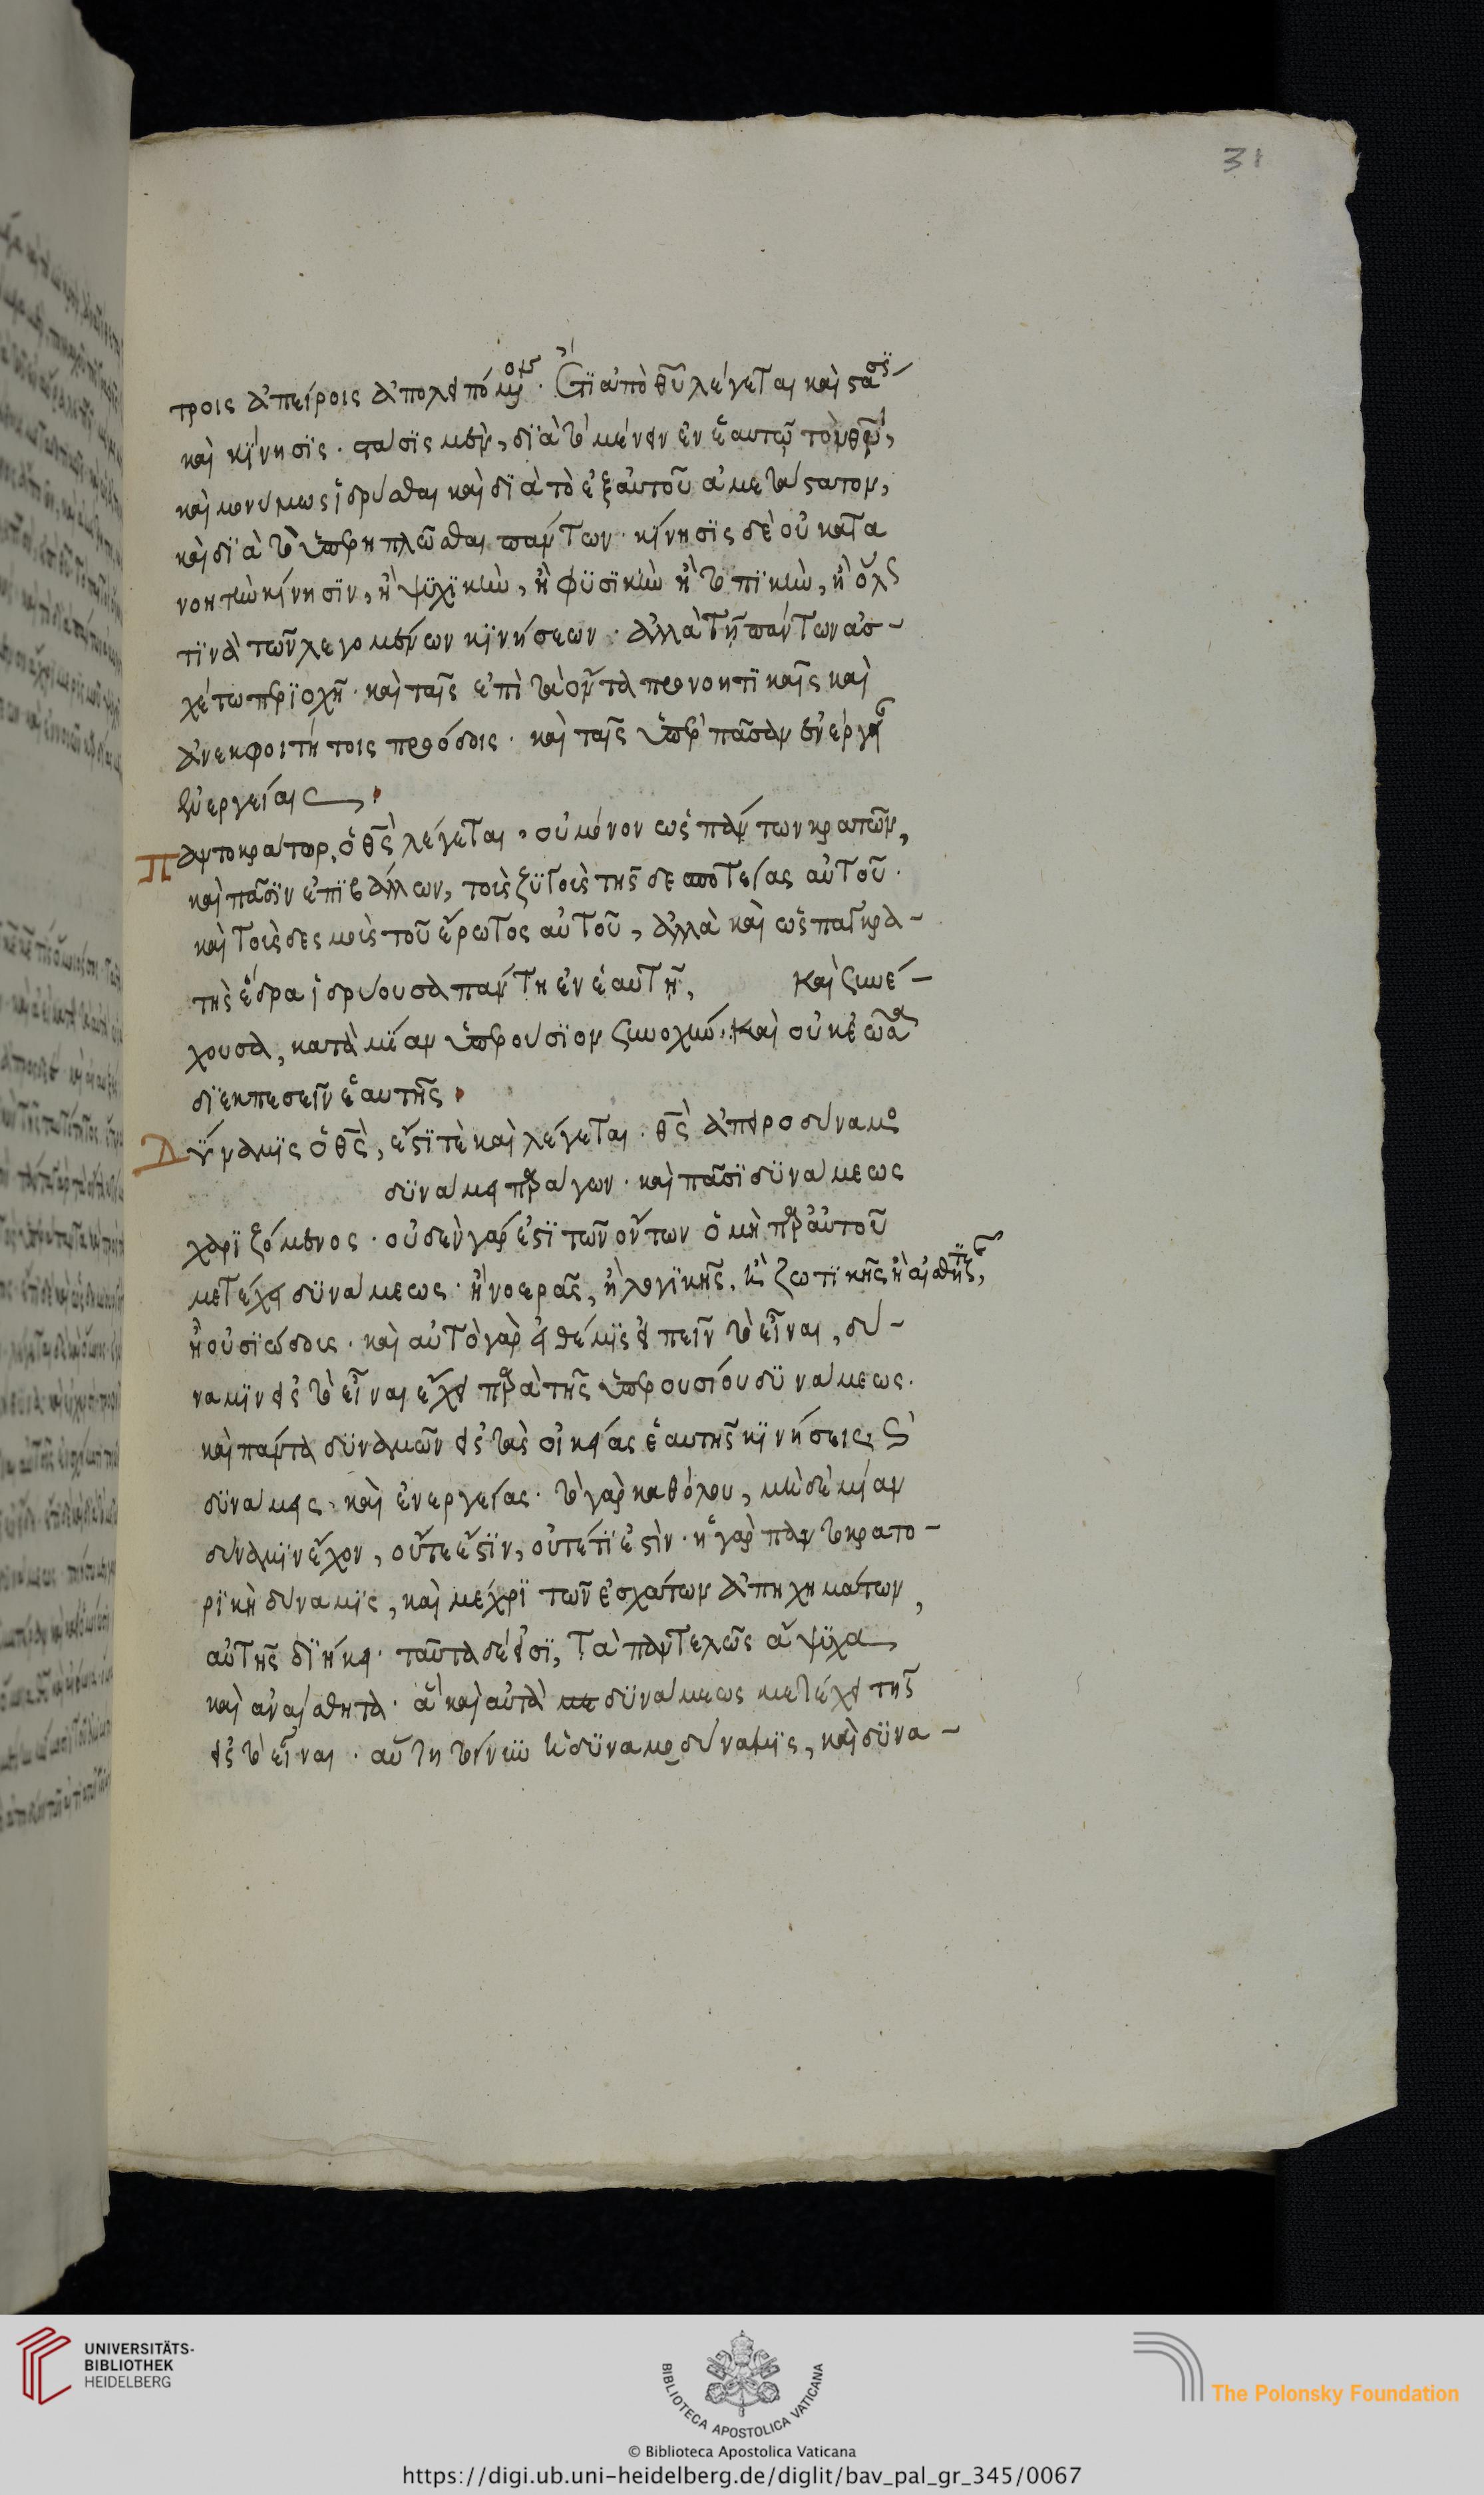 31
τροις ἀπείροις ἀπολειπόμενος. Ἔτι ἀπὸ θῦ λέγεται καὶ στάσις
καὶ κίνησις. στάσις μὲν, διὰ τὸ μένειν ἐν ἑαυτῷ τὸν θεὸν,
καὶ μονίμως ἱδρύσθαι καὶ διὰ τὸ ἐξ αὐτοῦ ἀμετάστατον,
καὶ διὰ τὸ ὑπερηπλῶσθαι πάντων. κίνησις δὲ οὐ κατὰ
νοητὴν κίνησιν, ἢ ψυχικὴν, ἢ φυσικὴν ἢ τοπικὴν, ἢ ὅλως
τινὰ τῶν λεγομένων κινήσεων. ἀλλὰ τῇ πάντων ἀσ-
χέτω περιοχῇ. καὶ ταῖς ἐπὶ τὰ ὄντα προνοητικαῖς καὶ
ἀνεκφοιτήτοις προόδοις. καὶ ταῖς ὑπὲρ πᾶσαν ἐνέργειαν
ἐνεργείαις.
Παντοκράτωρ, ὁ θς λέγεται. οὐ μόνον ὡς πάντων κρατῶν,
καὶ πᾶσιν ἐπιβάλλων, τοῖς ζυγοῖς τῆς δεσποτείας αὐτοῦ.
καὶ τοῖς δεσμοῖς τοῦ ἔρωτος αὐτοῦ, ἀλλὰ καὶ ὡς παγκρα-
τὴς ἕδρα ἱδρύουσα πάντη ἐν ἑαυτῇ, καὶ συνέ-
χουσα, κατὰ μίαν ὑπερούσιον συνοχὴν. καὶ οὐκ ἐῶσα
διεκπεσεῖν ἑαυτῆς.
Δύναμις ὁ θς, ἔστι τὲ καὶ λέγεται. θς ἀπειροδύναμος
δύναμιν παράγων. καὶ πᾶσι δυνάμεως
χαριζόμενος. οὐδὲν γάρ ἐστι τῶν ὄντων ὃ μὴ παρ' αὐτοῦ
μετέχει δυνάμεως. ἢ νοερᾶς, ἢ λογικῆς, ἢ ζωτικῆς, ἢ αἰσθητικῆς,
ἢ οὐσιώδους. καὶ αὐτὸ γὰρ εἰ θέμις εἰπεῖν τὸ εἶναι, δύ-
ναμιν εἰς τὸ εἶναι ἔχει παρὰ τῆς ὑπερουσίου δυνάμεως.
καὶ πάντα δυναμῶν εἰς τὰς οἰκείας ἑαυτῆς κινήσεις, καὶ
δυνάμεις. καὶ ἐνεργείας. τὸ γὰρ καθόλου, μηδὲ μίαν
δύναμιν ἔχον, οὔτε ἔστιν, οὔτέ τι ἐστὶν. ἡ γὰρ παντοκρατο-
ρικὴ δύναμις, καὶ μέχρι τῶν ἐσχάτων ἀπηχημάτων,
αὐτῆς διήκει. ταῦτα δέ εἰσι, τὰ παντελῶς ἄψυχα
καὶ ἀναίσθητα. ἃ καὶ αὐτὰ δυνάμεως μετέχει τῆς
εἰς τὸ εἶναι. αὕτη τοίνυν ἡ δυναμο δύναμις, καὶ δύνα-
UNIVERSITÄTS-
BIBLIOTHEK
HEIDELBERG
BIBLIOTECA APOSTOLICA VATICANA
The Polonsky Foundation
© Biblioteca Apostolica Vaticana
https://digi.ub.uni-heidelberg.de/diglit/bav_pal_gr_345/0067